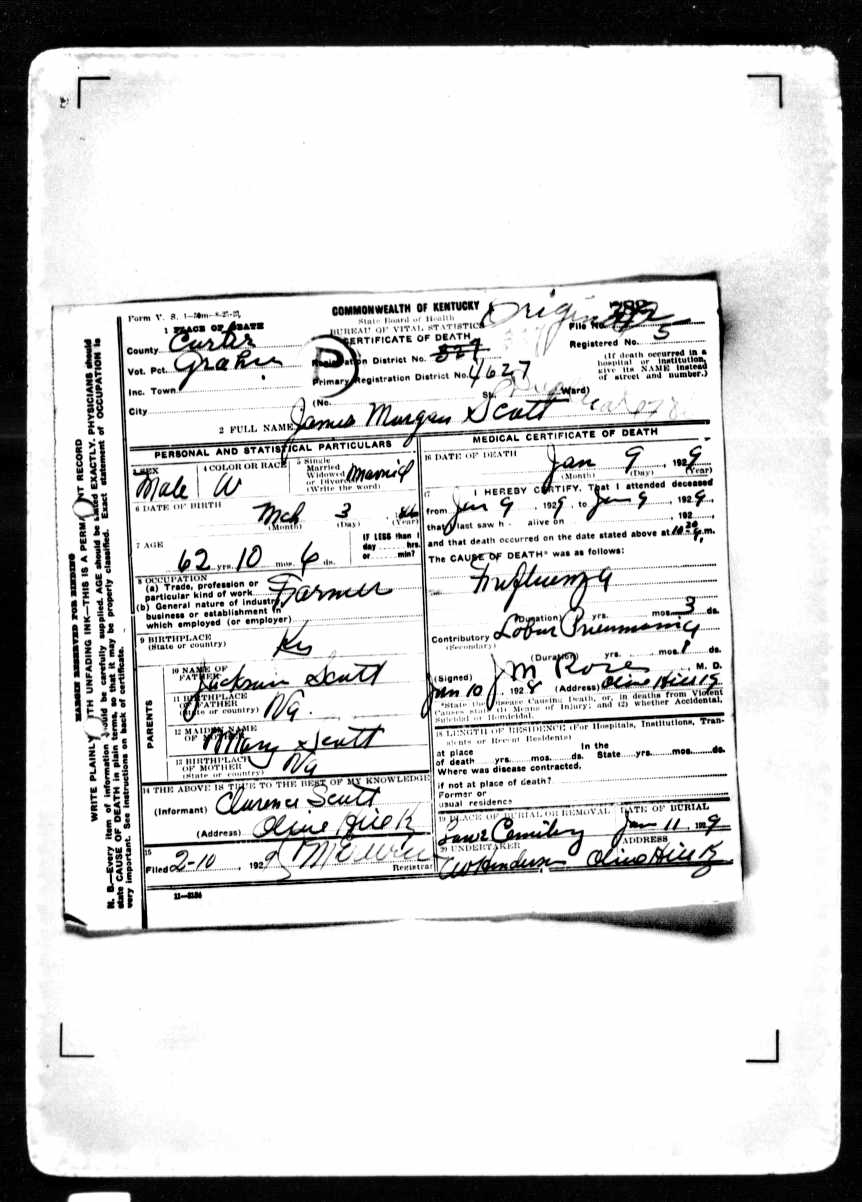 Form V. S. 1
COMMONWEALTH OF KENTUCKY
State Board of Health
BUREAU OF VITAL STATISTICS
CERTIFICATE OF DEATH
File No.
Registered No. 5
(If death occurred in a hospital or institution, give its NAME instead of street and number.)
1 PLACE OF DEATH
County Carter
Vot. Pct. Grahn
Inc. Town
City
Registration District No.
Primary Registration District No. 4627
(No. St. Ward)
2 FULL NAME James Morgan Scott
PERSONAL AND STATISTICAL PARTICULARS
3 SEX
Male
4 COLOR OR RACE
W
5 Single Married Widowed or Divorced (Write the word)
Married
6 DATE OF BIRTH
Mch 3
(Month) (Day) (Year)
7 AGE
62 yrs. 10 mos. 6 ds.
IF LESS than 1 day hrs. or min?
8 OCCUPATION
(a) Trade, profession or particular kind of work Farmer
(b) General nature of industry business or establishment in which employed (or employer)
9 BIRTHPLACE
(State or country) Ky
PARENTS
10 NAME OF FATHER Jackson Scott
11 BIRTHPLACE OF FATHER (State or country) Va.
12 MAIDEN NAME OF MOTHER Mary Scott
13 BIRTHPLACE OF MOTHER (State or country) Va
14 THE ABOVE IS TRUE TO THE BEST OF MY KNOWLEDGE
(Informant) Clarence Scott
(Address) Olive Hill K
15
Filed 2-10, 192
Registrar
11-3184
MEDICAL CERTIFICATE OF DEATH
16 DATE OF DEATH
Jan 9, 1929
(Month) (Day) (Year)
17 I HEREBY CERTIFY, That I attended deceased
from Jan 9, 1929, to Jan 9, 1929,
that I last saw h alive on 192
and that death occurred on the date stated above at m.
The CAUSE OF DEATH* was as follows:
Influenza
(Duration) yrs. mos. 3 ds.
Contributory Lobar Pneumonia
(Secondary)
(Duration) yrs. mos. 1 ds.
(Signed) J M Rose, M. D.
Jan 10, 1928 (Address) Olive Hill Ky
*State the Disease Causing Death, or, in deaths from Violent Causes state (1) Means of Injury; and (2) whether Accidental, Suicidal or Homicidal.
18 LENGTH OF RESIDENCE (For Hospitals, Institutions, Transients or Recent Residents)
at place of death yrs. mos. ds. In the State yrs. mos. ds.
Where was disease contracted,
if not at place of death?
Former or usual residence
19 PLACE OF BURIAL OR REMOVAL DATE OF BURIAL
Cemetery Jan 11, 1929
20 UNDERTAKER ADDRESS
Henderson Olive Hill K
MARGIN RESERVED FOR BINDING
WRITE PLAINLY WITH UNFADING INK—THIS IS A PERMANENT RECORD
N. B.—Every item of information should be carefully supplied. AGE should be stated EXACTLY. PHYSICIANS should
state CAUSE OF DEATH in plain terms, so that it may be properly classified. Exact statement of OCCUPATION is
very important. See instructions on back of certificate.